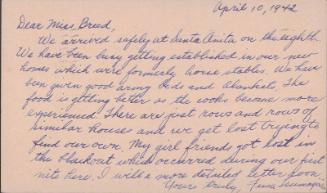 April 10, 1942
Dear Miss Breed,
We arrived safely at Santa Anita on the eighth.
We have been busy getting established in our new
homes which were formerly horse stables. We have
been given good army beds and blankets. The
food is getting better as the cooks become more
experienced. There are just rows and rows of
similar houses and we get lost trying to
find our own. My girl friends got lost in
the blackout which occurred during our first
nite here. I will a more detailed letter soon.
Yours truly,